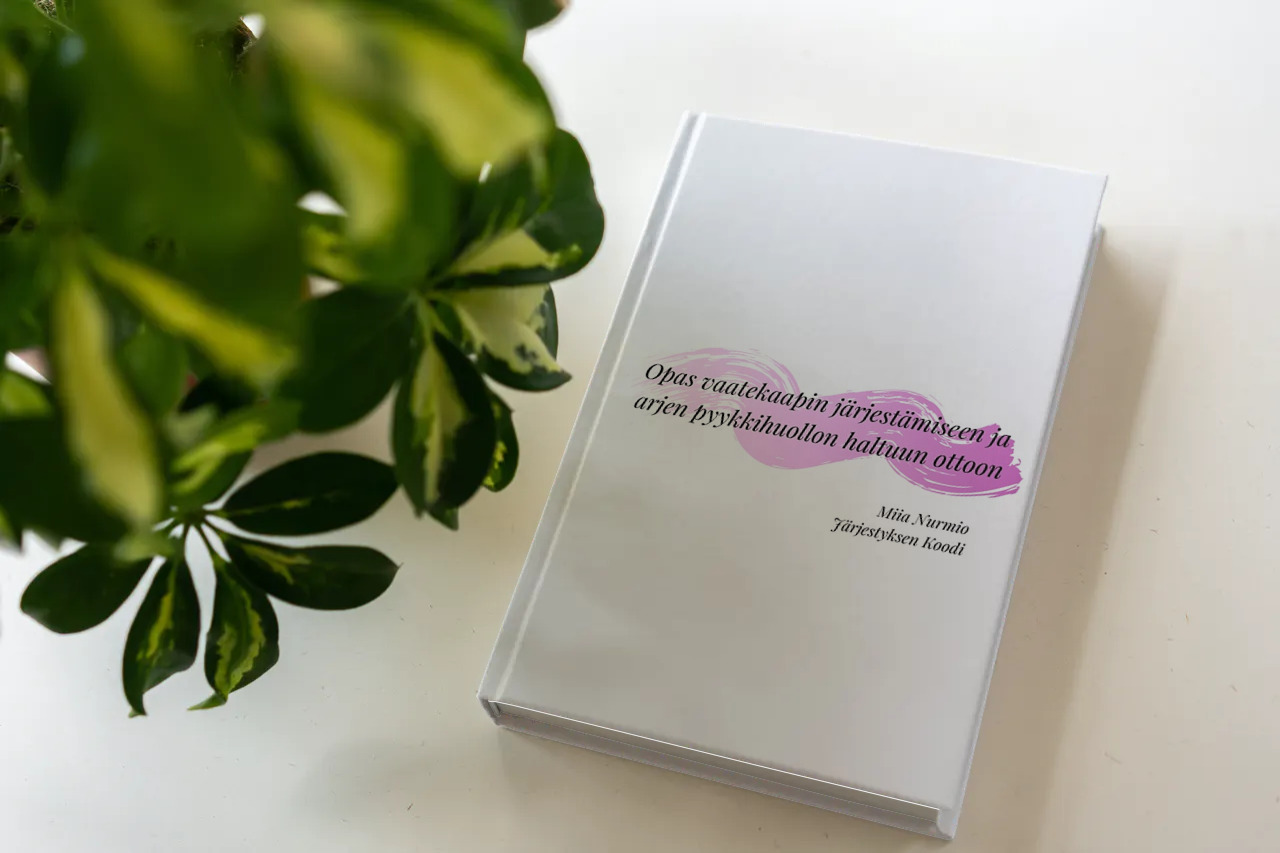 Opas vaatekaapin järjestämiseen ja
arjen pyykkihuollon haltuun ottoon
Miia Nurmio
Järjestyksen Koodi